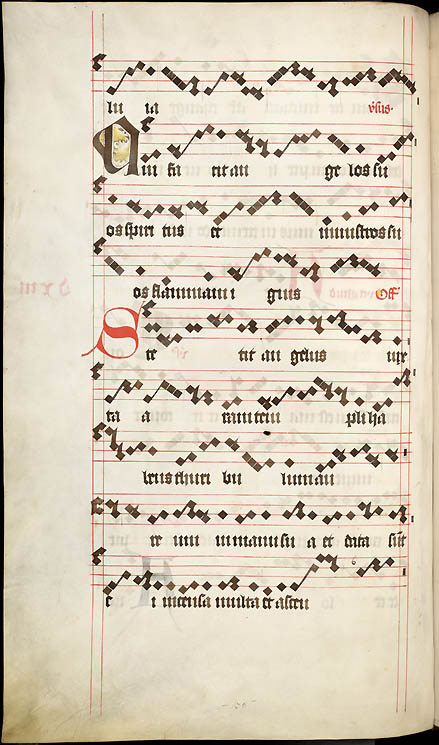 lu ia v͛sus·
Qui fa cit an ge los su
os spiri tus et ministros su
os flammam i gnis Off
Ste tit an gelus iux
ta a ram tem pli ha
bens thuri bu lum au
re um in manu su a et data sūt
e i incensa multa et ascen